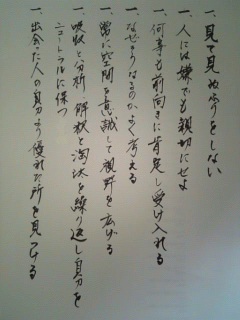 一、見て見ぬ振りをしない
一、人には嫌でも親切にせよ
一、何事も前向きに肯定し受け入れる
一、なぜそうなるのかよく考える
一、常に空間を意識して視野を広げる
一、吸収と分析 解釈と淘汰を繰り返し自分を
ニュートラルに保つ
一、出会った人の自分より優れた所を見つける